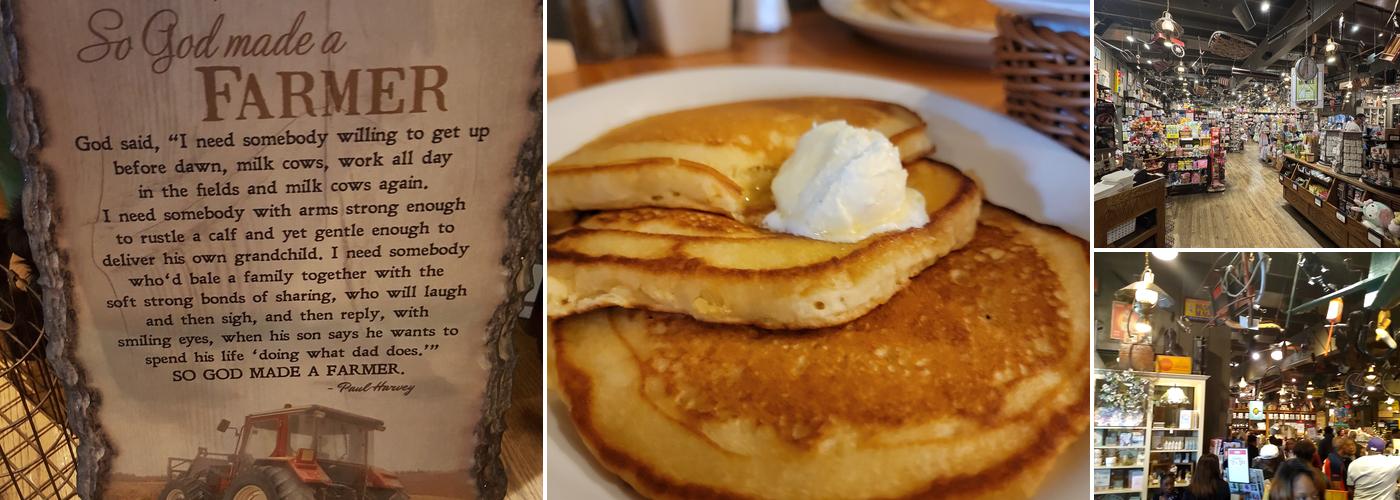 So God made a
FARMER
God said, “I need somebody willing to get up
before dawn, milk cows, work all day
in the fields and milk cows again.
I need somebody with arms strong enough
to rustle a calf and yet gentle enough to
deliver his own grandchild. I need somebody
who‘d bale a family together with the
soft strong bonds of sharing, who will laugh
and then sigh, and then reply, with
smiling eyes, when his son says he wants to
spend his life ‘doing what dad does.’”
SO GOD MADE A FARMER.
- Paul Harvey